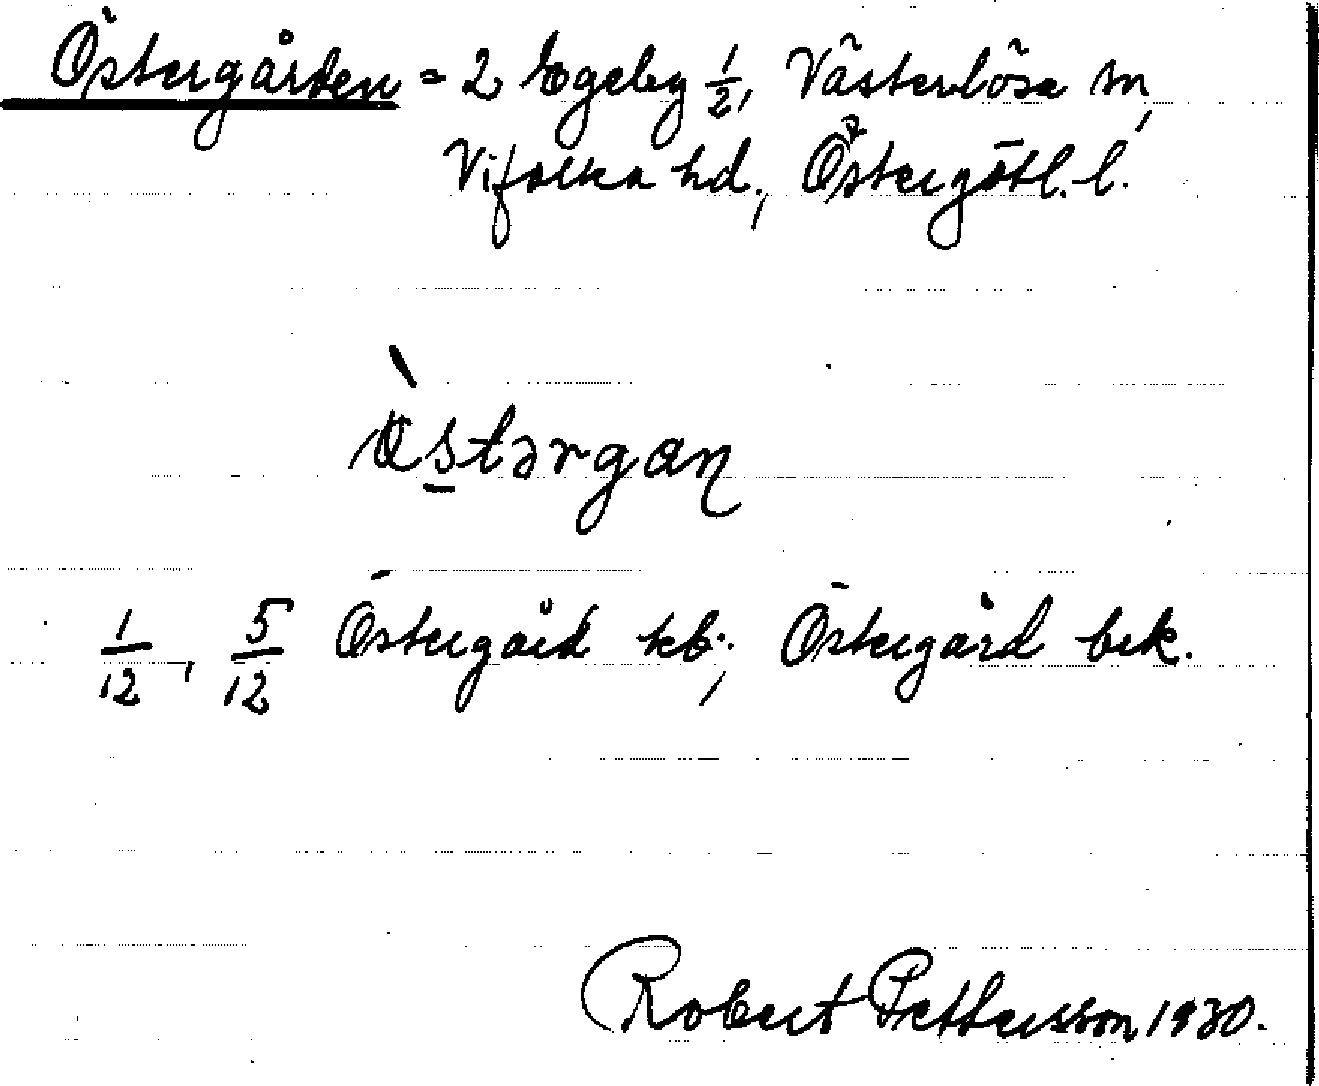 Östergården = 2 Egeby 1/2, Västerlösa sn,
Vifolka hd., Östergötl. l.
1/12, 5/12 Östergård kb.; Östergård bek.
Robert Pettersson 1930.